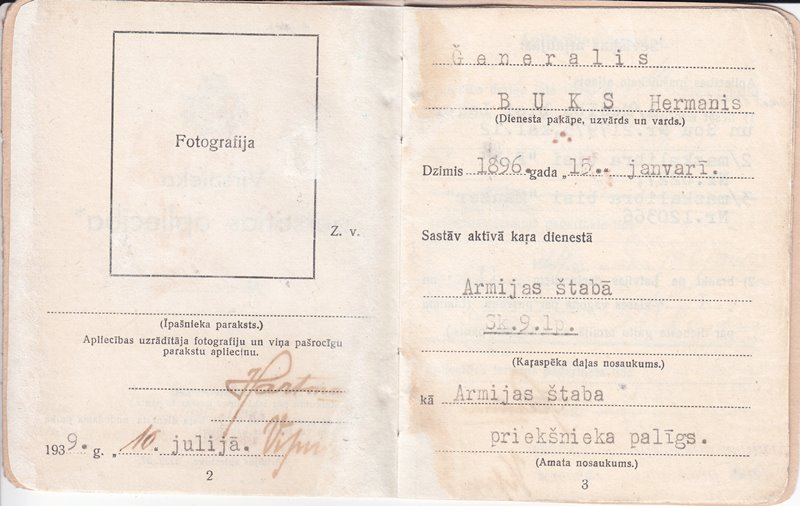 Fotografija
Z. v.
(Īpašnieka paraksts.)
Apliecības uzrādītāja fotografiju un viņa pašrocīgu
parakstu apliecinu.
1939. g. „10. julijā.
2
Ģeneralis
BUKS Hermanis
(Dienesta pakāpe, uzvārds un vards.)
Dzimis 1896. gada „15.. janvarī.
Sastāv aktīvā kaŗa dienestā
Armijas štabā
Sk.9.lp.
(Kaŗaspēka daļas nosaukums.)
kā Armijas štaba
priekšnieka palīgs.
(Amata nosaukums.)
3